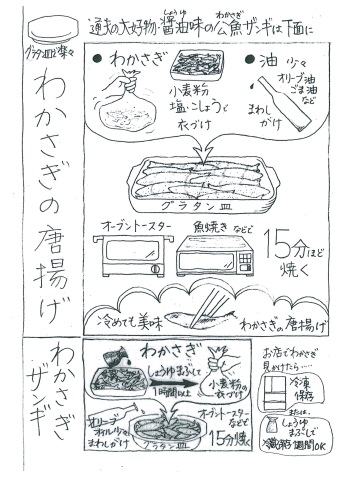 グラタン皿で楽々
わかさぎの唐揚げ
道夫の大好物・醤油味の公魚ザンギは下面に
しょうゆ
わかさぎ
●わかさぎ
小麦粉
塩・こしょうで
衣づけ
●油 少々
オリーブ油
ごま油
など
まわし
がけ
グラタン皿
オーブントースター
魚焼きなどで
15分ほど
焼く
冷めても美味
わかさぎの唐揚げ
わかさぎ
ザンギ
わかさぎ
しょうゆまぶして
1時間以上
小麦粉の
衣づけ
オリーブ
オイル少々
まわしがけ
グラタン皿
オーブントースター
などで
15分焼く
お店でわかさぎ
見かけたら……
冷凍
保存
または、
しょうゆ
まぶして
冷蔵保存1週間OK